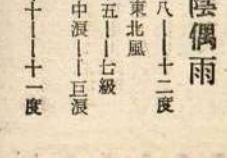 陰偶雨
八——十二度
東北風
五——七級
中浪——巨浪
十——十一度